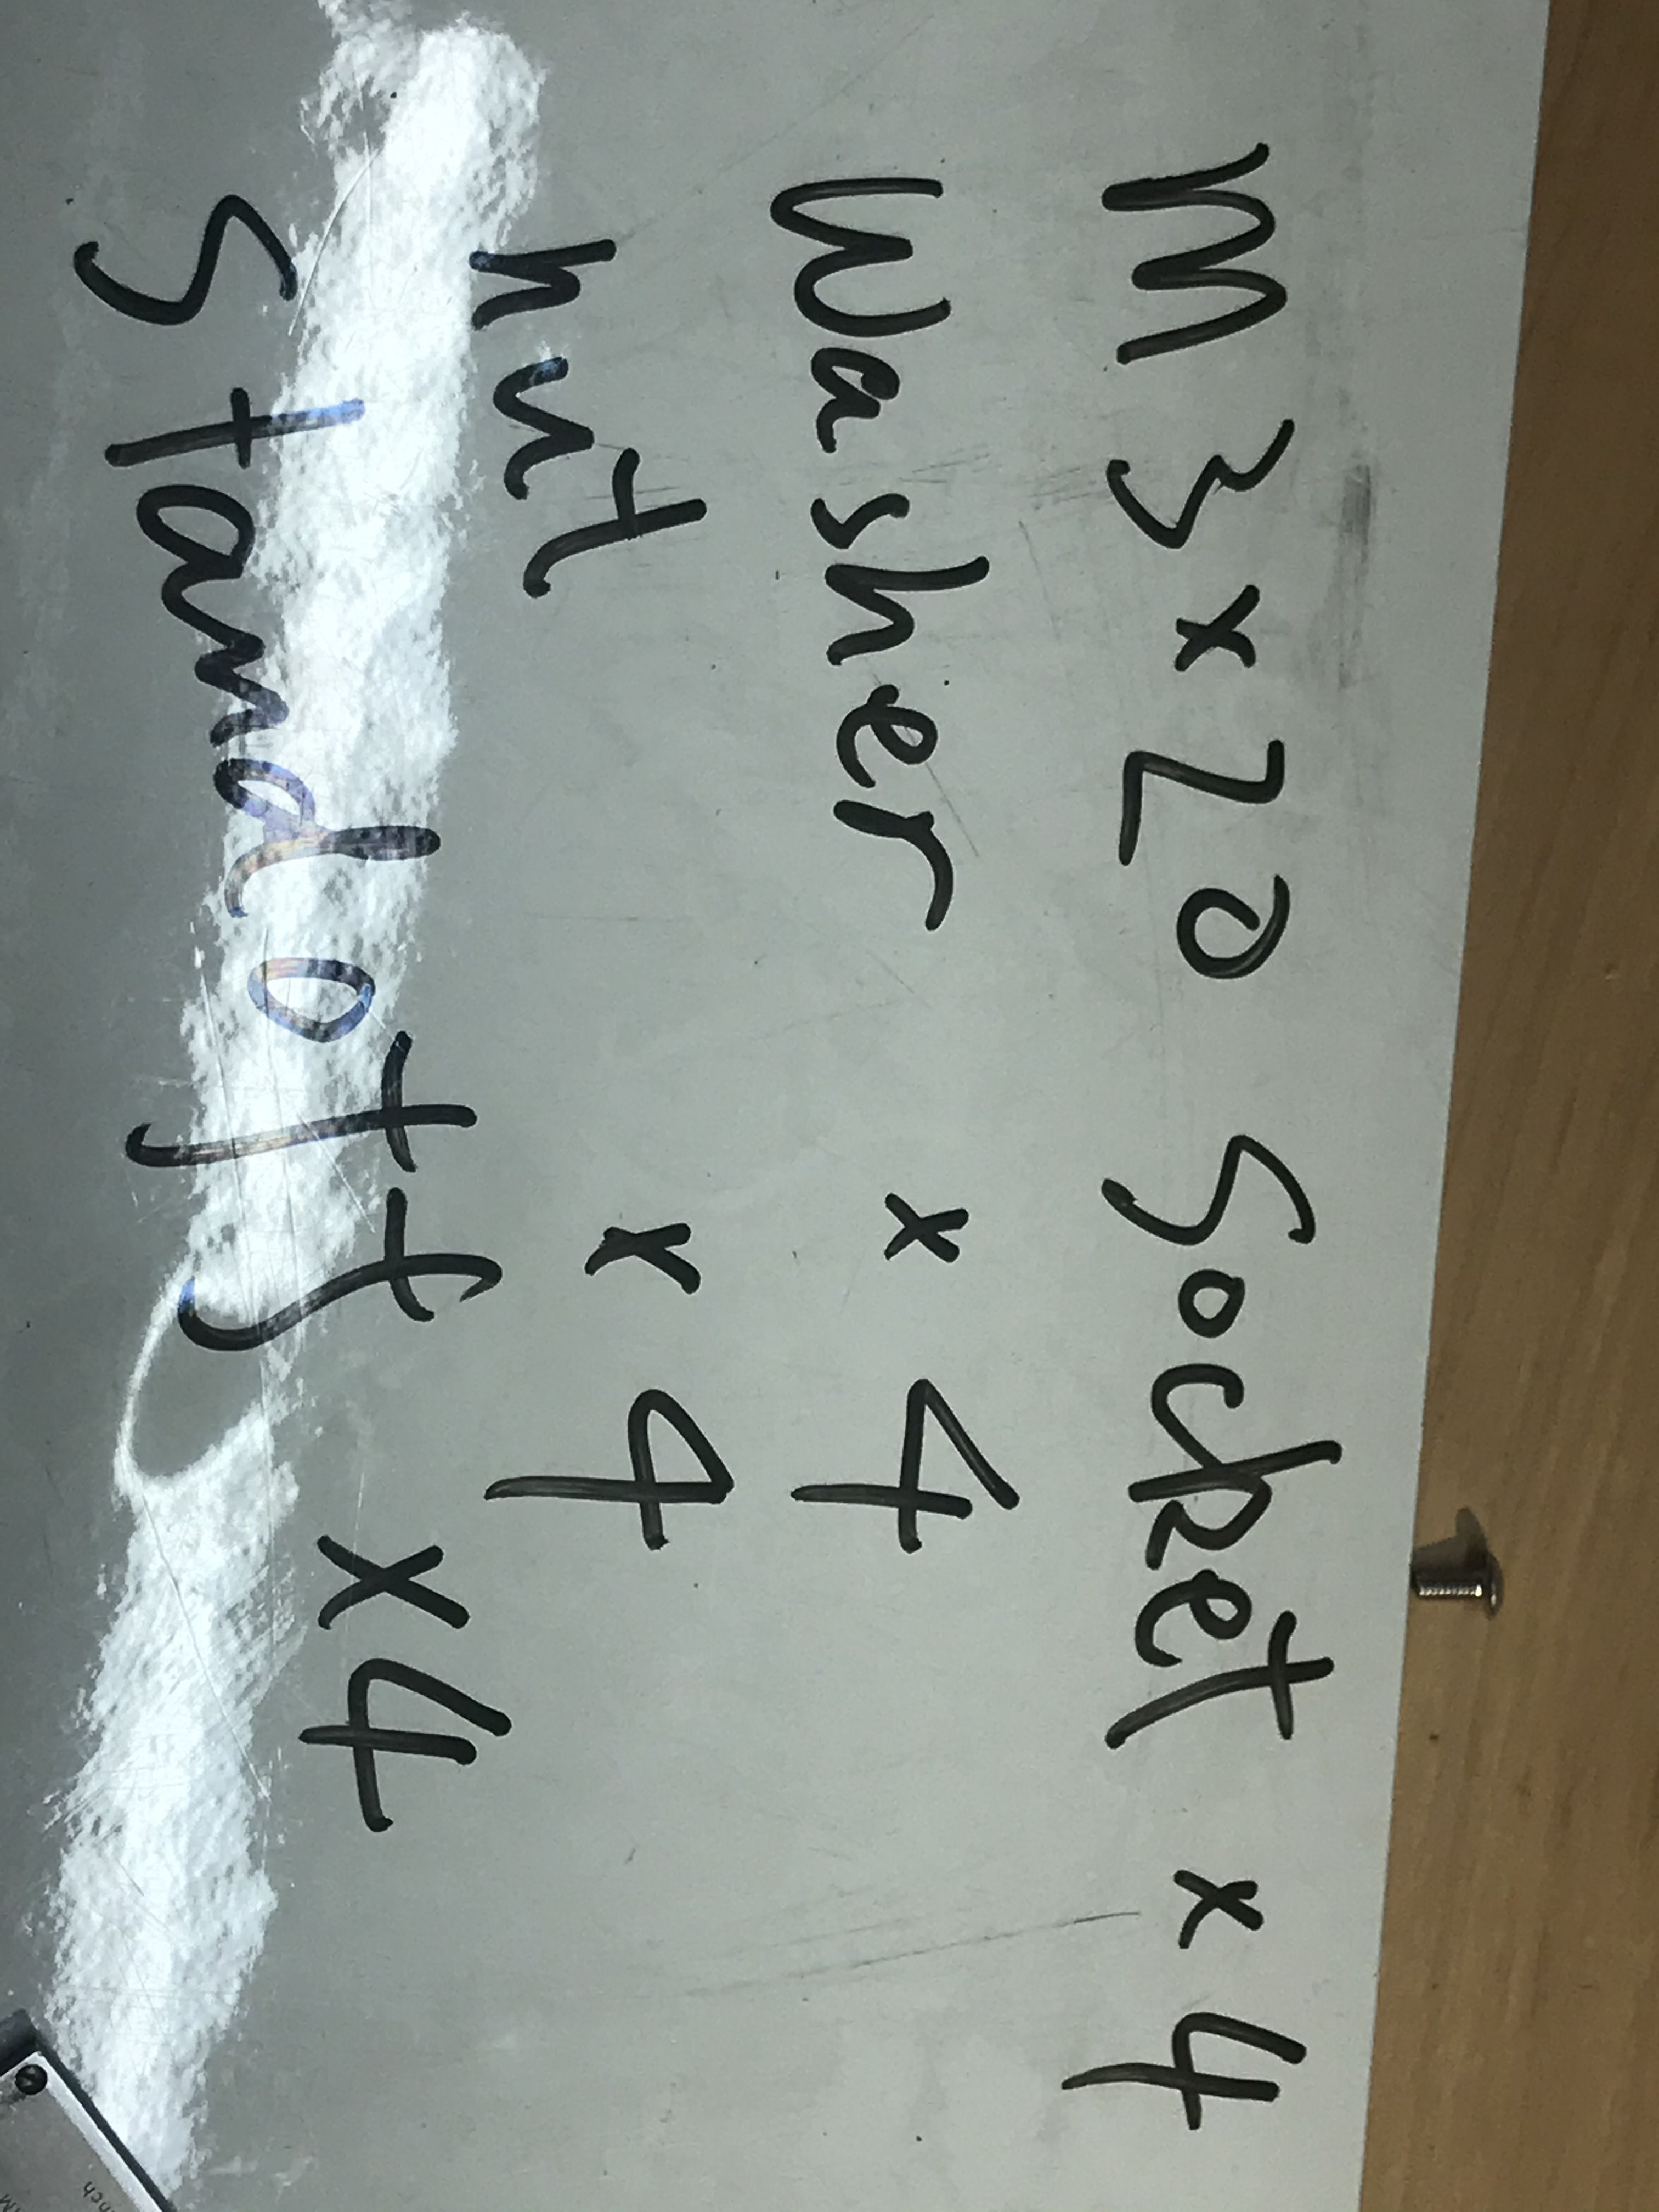 M3x20 Socket x4
Washer x4
nut x4
Standoffs x4
nch